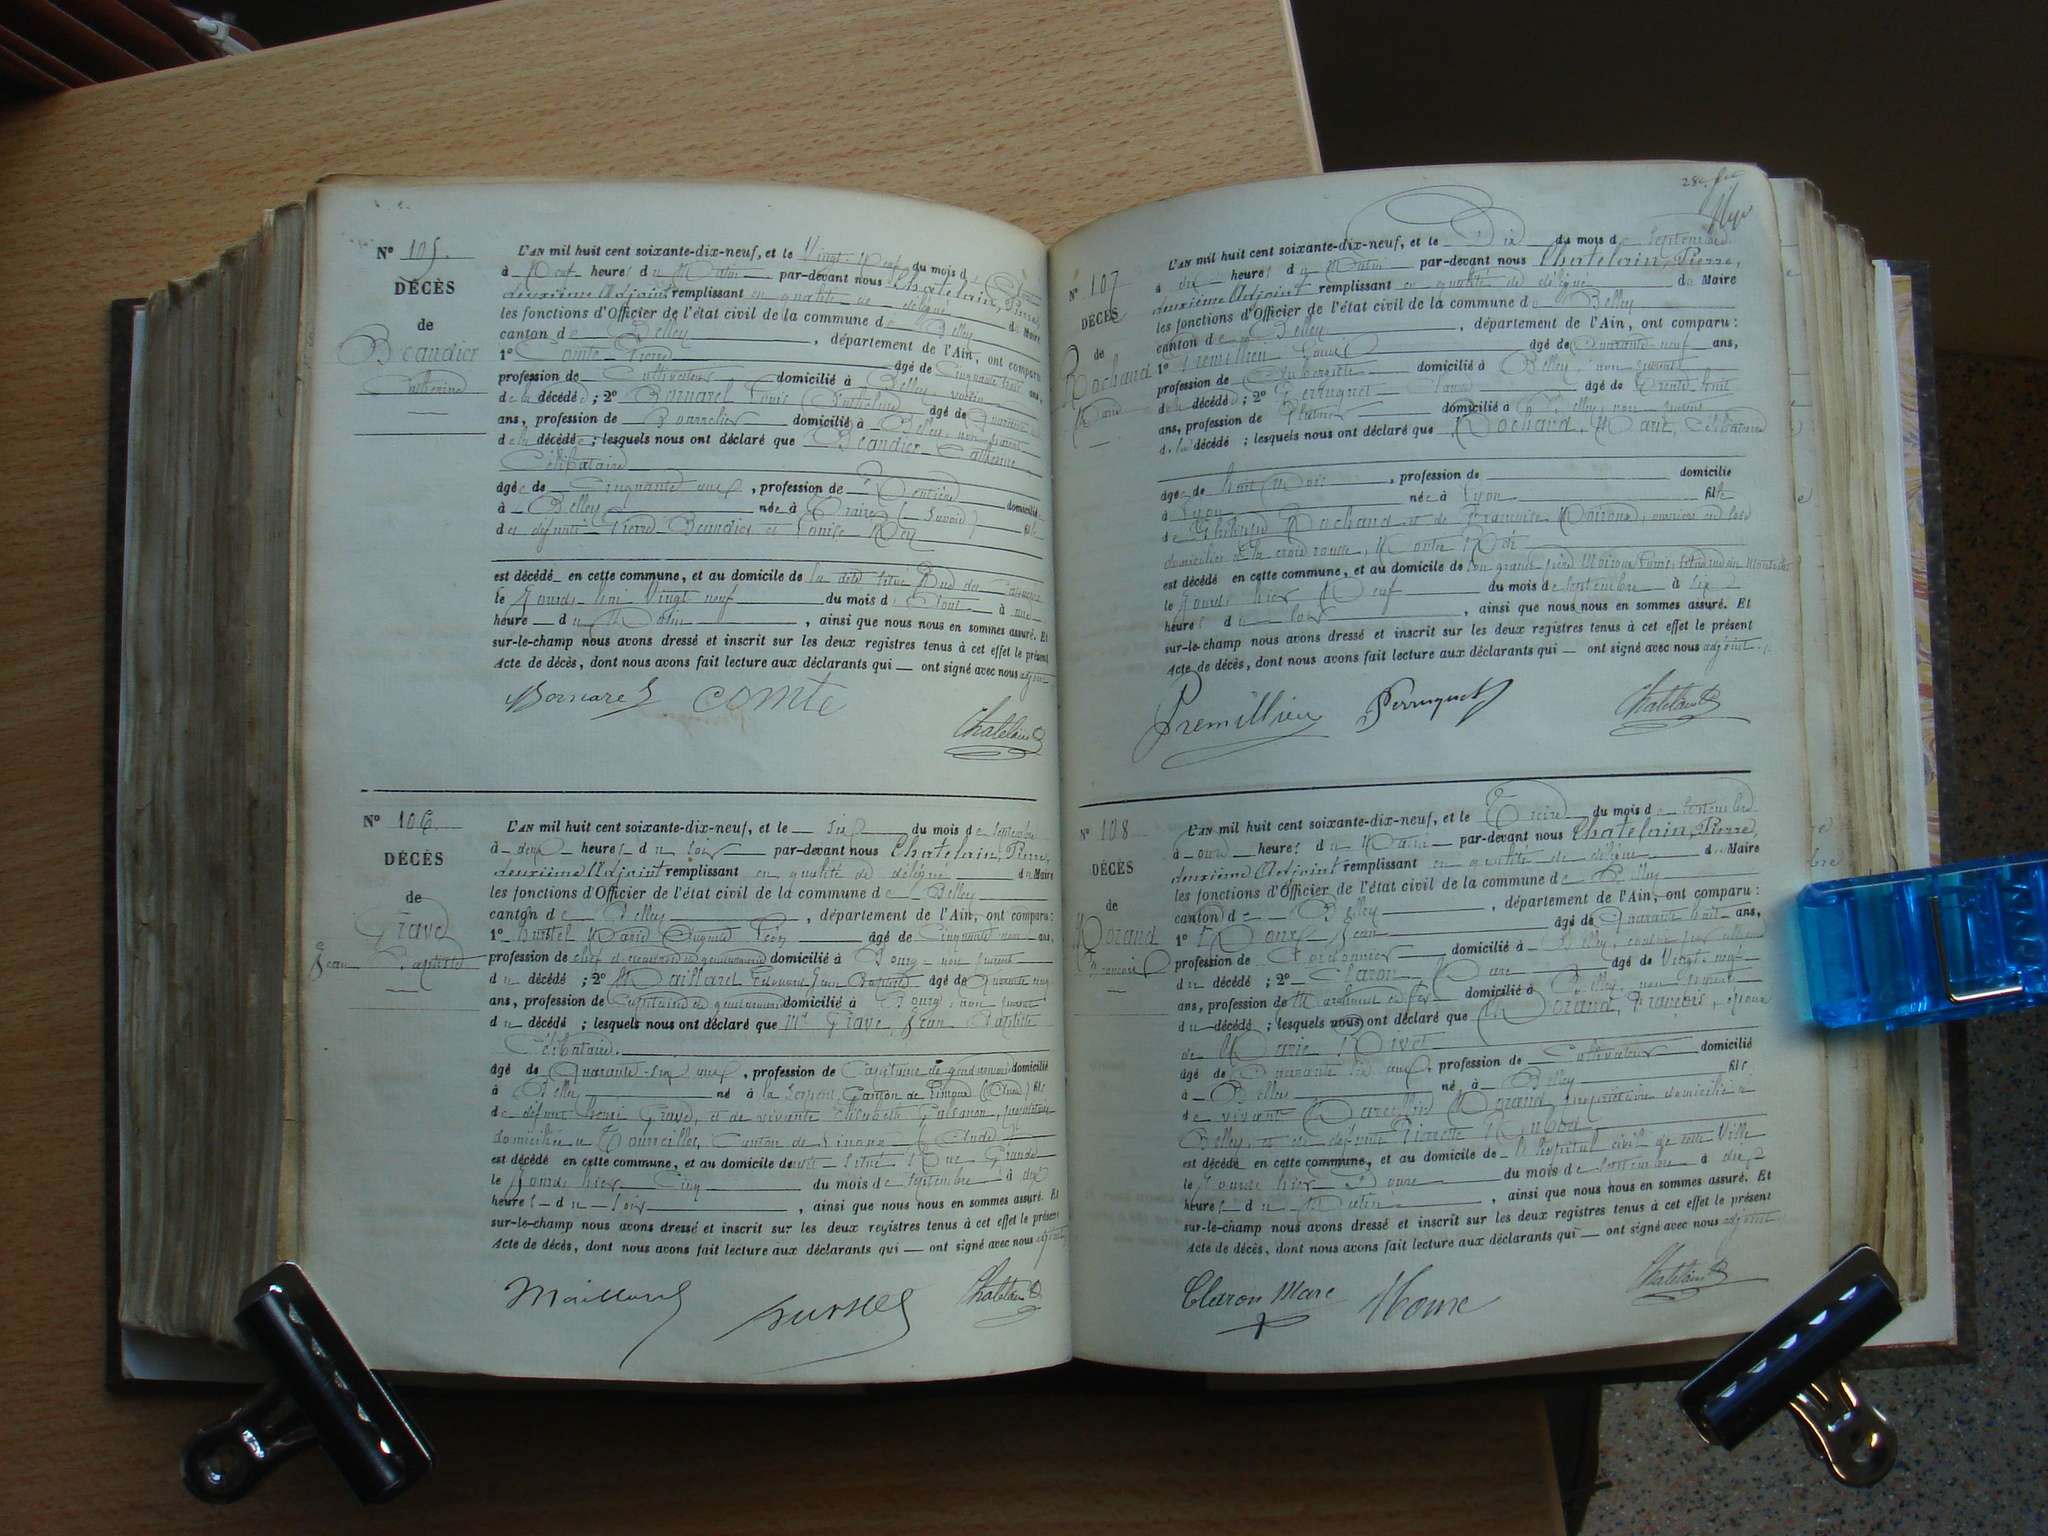 N° 105.
DÉCÈS
de
Beaudier
Catherine
L'AN mil huit cent soixante-dix-neuf, et le Vingt-Neuf du mois d
à Neuf heures du Matin par-devant nous Chatelain, Pierre,
deuxième Adjoint remplissant en qualité de délégué du Maire
les fonctions d'Officier de l'état civil de la commune de Belley
canton de Belley, département de l'Ain, ont comparu
1° Comte Pierre âgé de Cinquante trois ans,
profession de Cultivateur domicilié à Belley, voisin
de la décédée; 2° Bonnard Louis Anthelme âgé de Quarante
ans, profession de Bourrelier domicilié à Belley, non parent
de la décédée; lesquels nous ont déclaré que Beaudier Catherine,
Célibataire
âgée de Cinquante ans, profession de Rentière domiciliée
à Belley née à (Savoie) fille
des défunts Pierre Beaudier et Louise Rey
est décédée en cette commune, et au domicile de la dite situé Rue des
le Jourd'hui Vingt neuf du mois d'Août à une
heure du Matin, ainsi que nous nous en sommes assuré. Et
sur-le-champ nous avons dressé et inscrit sur les deux registres tenus à cet effet le présent
Acte de décès, dont nous avons fait lecture aux déclarants qui — ont signé avec nous adjoint
Bonnard Comte
Chatelain
N° 106.
DÉCÈS
de
Grave
Jean Baptiste
L'AN mil huit cent soixante-dix-neuf, et le six du mois de Septembre
à deux heures du soir par-devant nous Chatelain, Pierre,
deuxième Adjoint remplissant en qualité de délégué du Maire
les fonctions d'Officier de l'état civil de la commune de Belley
canton de Belley, département de l'Ain, ont comparu:
1° Hurstel Marie Auguste Léon âgé de Cinquante ans,
profession de chef d'escadron de gendarmerie domicilié à Bourg non parent
du décédé; 2° Maillard Edouard Jean Baptiste âgé de Quarante cinq
ans, profession de Capitaine de gendarmerie domicilié à Bourg, non parent
du décédé; lesquels nous ont déclaré que Mr Grave, Jean Baptiste
Célibataire.
âgé de Quarante-six ans, profession de Capitaine de gendarmerie domicilié
à Belley né à la Serpent, Canton de (Aude) fils
de défunt Henri Grave, et de vivante Elisabeth propriétaire
domiciliée à Tourreilles, Canton de Limoux (Aude)
est décédé en cette commune, et au domicile de situé Rue Grande
le Jourd'hier Cinq du mois de Septembre à dix
heures du soir, ainsi que nous nous en sommes assuré. Et
sur-le-champ nous avons dressé et inscrit sur les deux registres tenus à cet effet le présent
Acte de décès, dont nous avons fait lecture aux déclarants qui — ont signé avec nous adjoint
Maillard Hurstel Chatelain
28e
N° 107
DÉCÈS
de
Rochand
Marie
L'AN mil huit cent soixante-dix-neuf, et le Dix du mois de Septembre
à dix heures du Matin par-devant nous Chatelain, Pierre,
deuxième Adjoint remplissant en qualité de délégué du Maire
les fonctions d'Officier de l'état civil de la commune de Belley
canton de Belley, département de l'Ain, ont comparu:
1° Premillieu Louis âgé de Quarante neuf ans,
profession de Aubergiste domicilié à Belley, non parent
de la décédée; 2° Perruquet âgé de Trente huit
ans, profession de Platrier domicilié à Belley, non parent
de la décédée; lesquels nous ont déclaré que Rochand, Marie, Célibataire
âgée de huit Mois, profession de domiciliée
à Lyon née à Lyon fille
de Rochand et de Françoise Moiroux, ouvriers en soie
domiciliés à la croix rousse,
est décédée en cette commune, et au domicile de son grand père Moiroux
le Jourd'hier Neuf du mois de Septembre à six
heures du soir, ainsi que nous nous en sommes assuré. Et
sur-le-champ nous avons dressé et inscrit sur les deux registres tenus à cet effet le présent
Acte de décès, dont nous avons fait lecture aux déclarants qui — ont signé avec nous adjoint.
Premillieu Perruquet Chatelain
N° 108
DÉCÈS
de
Morand
François
L'AN mil huit cent soixante-dix-neuf, et le Treize du mois de Septembre
à onze heures du Matin par-devant nous Chatelain, Pierre,
deuxième Adjoint remplissant en qualité de délégué du Maire
les fonctions d'Officier de l'état civil de la commune de Belley
canton de Belley, département de l'Ain, ont comparu:
1° Roux Jean âgé de Quarante huit ans,
profession de Cordonnier domicilié à Belley, cousin par alliance
du décédé; 2° Claron Marc âgé de Vingt-neuf
ans, profession de Marchand de fer domicilié à Belley, non parent
du décédé; lesquels nous ont déclaré que Morand, François, époux
de Marie Rivet
âgé de Quarante six ans, profession de Cultivateur domicilié
à Belley né à Belley fils
de vivant Marcellin Morand propriétaire domicilié à
Belley, et de défunte Pierrette
est décédé en cette commune, et au domicile de l'hôpital civil de cette Ville
le Jourd'hier Douze du mois de Septembre à dix
heures du Matin, ainsi que nous nous en sommes assuré. Et
sur-le-champ nous avons dressé et inscrit sur les deux registres tenus à cet effet le présent
Acte de décès, dont nous avons fait lecture aux déclarants qui — ont signé avec nous adjoint.
Claron Marc Roux Chatelain